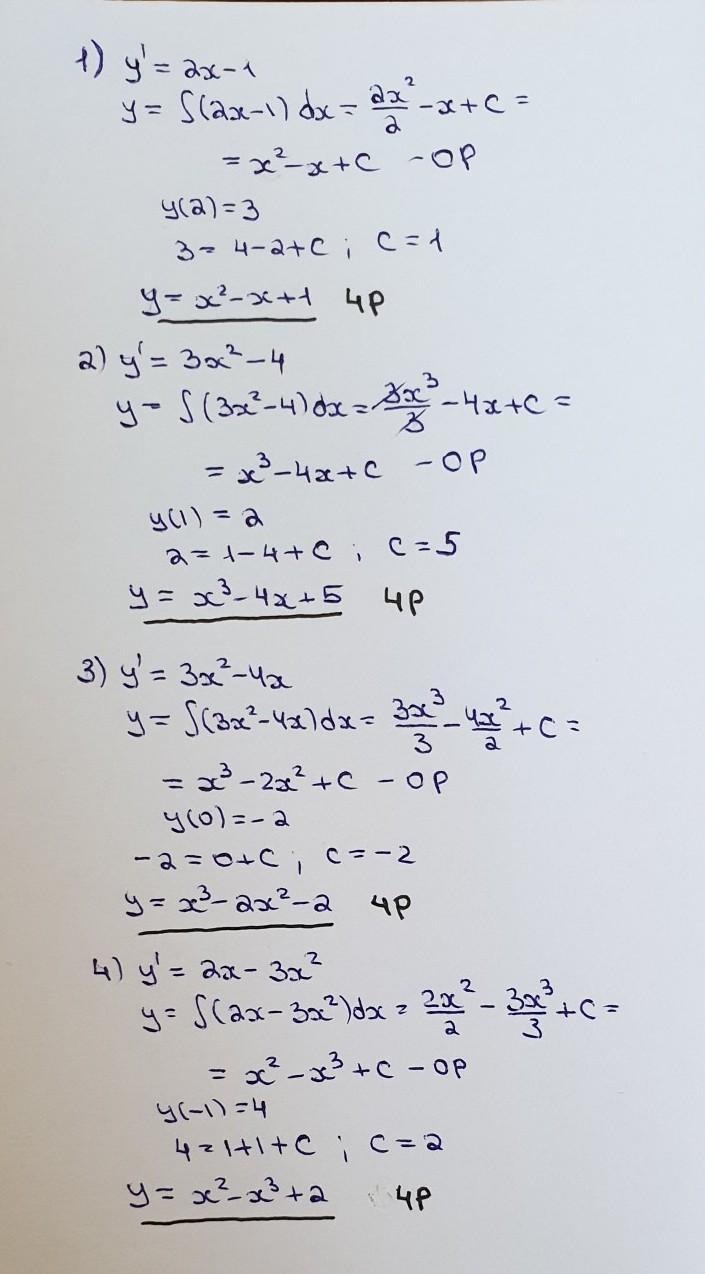 1) y' = 2x-1
y = ∫(2x-1) dx = 2x²/2 - x + C =
= x² - x + C - OP
y(2) = 3
3 = 4-2+C ; C = 1
y = x² - x + 1 4P
2) y' = 3x² - 4
y = ∫(3x²-4)dx = 3x³/3 - 4x + C =
= x³ - 4x + C - OP
y(1) = 2
2 = 1-4+C ; C = 5
y = x³ - 4x + 5 4P
3) y' = 3x² - 4x
y = ∫(3x²-4x)dx = 3x³/3 - 4x²/2 + C =
= x³ - 2x² + C - OP
y(0) = -2
-2 = 0+C ; C = -2
y = x³ - 2x² - 2 4P
4) y' = 2x - 3x²
y = ∫(2x-3x²)dx = 2x²/2 - 3x³/3 + C =
= x² - x³ + C - OP
y(-1) = 4
4 = 1+1+C ; C = 2
y = x² - x³ + 2 4P